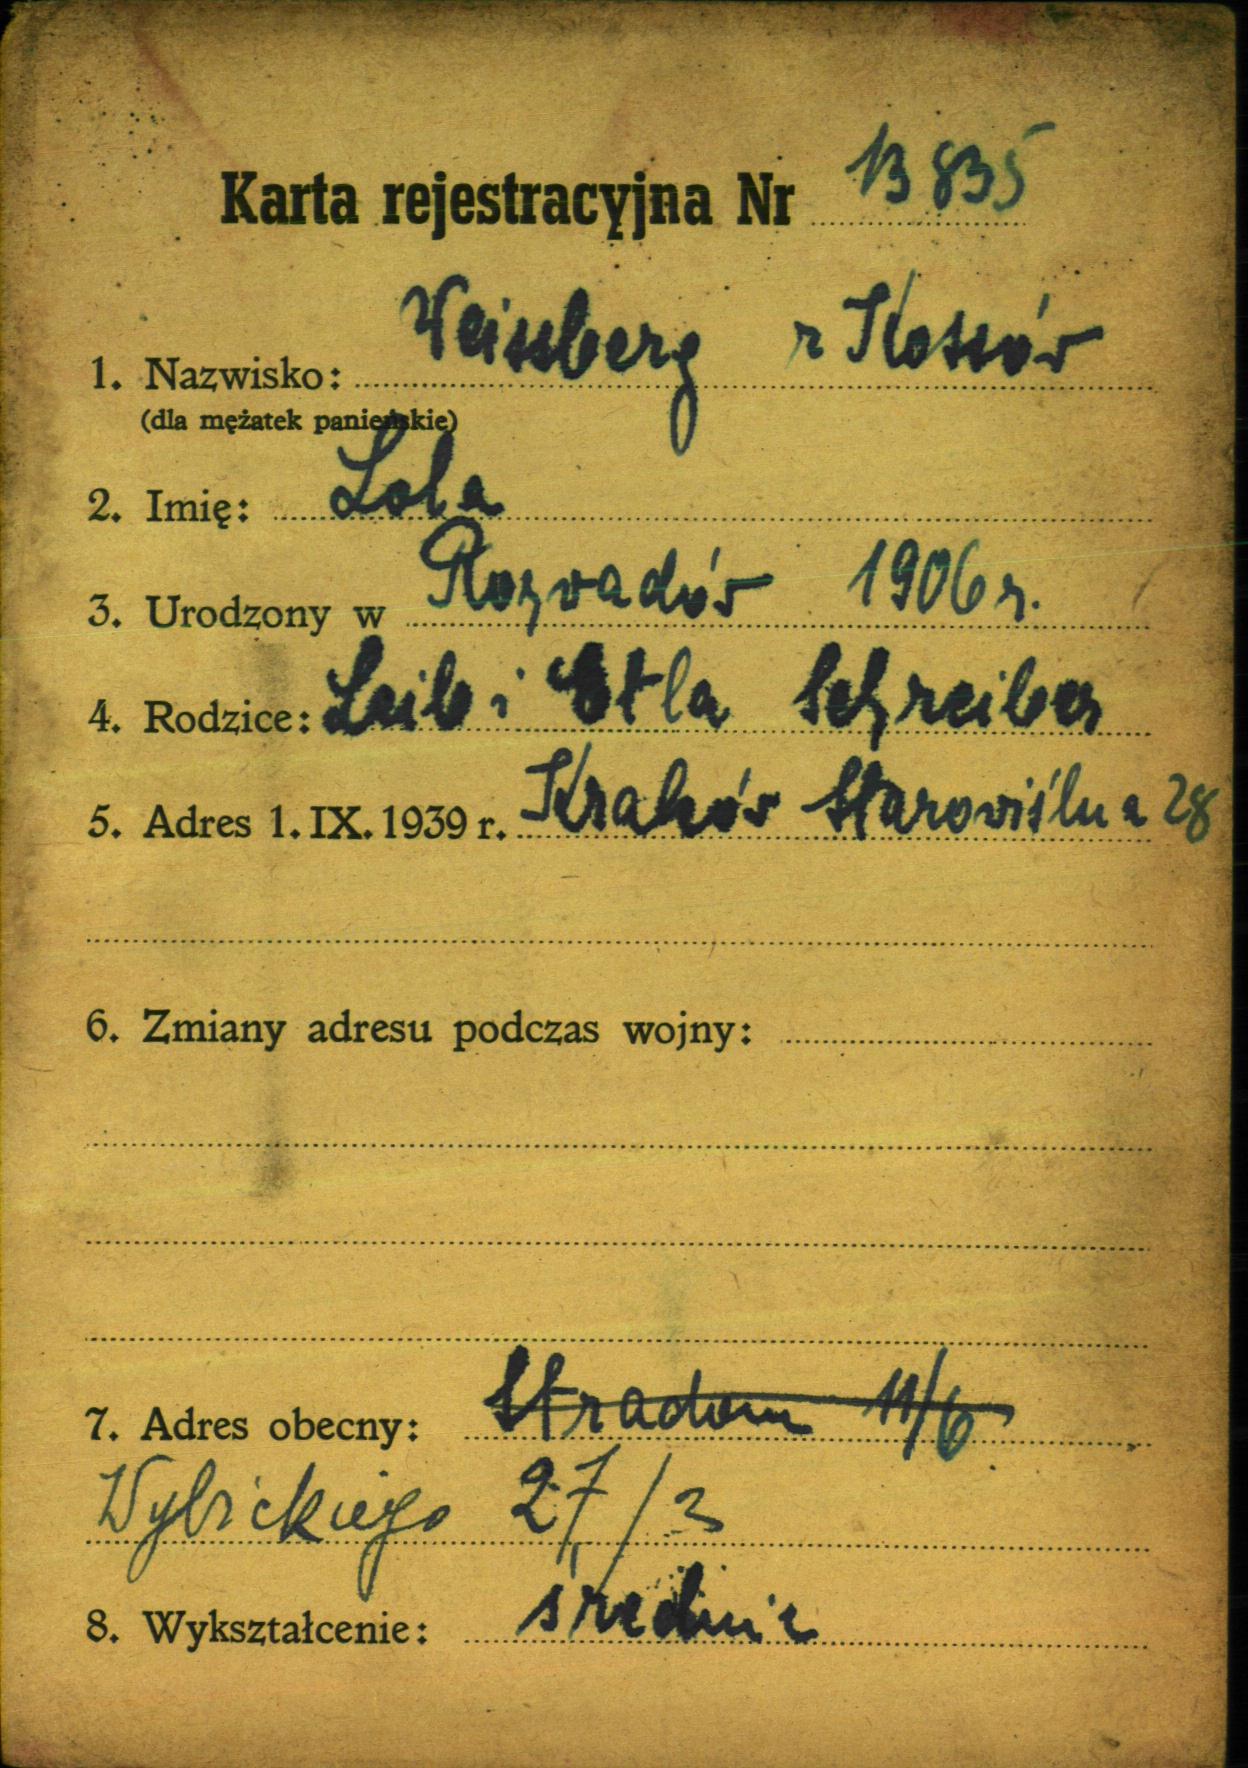 Karta rejestracyjna Nr 13835
1. Nazwisko: Weissberg z Kossów
(dla mężatek panieńskie)
2. Imię: Lola
3. Urodzony w Rozwadów 1906 r.
4. Rodzice: Leib i Etla Schreiber
5. Adres 1. IX. 1939 r. Kraków Starowiślna 28
6. Zmiany adresu podczas wojny:
7. Adres obecny: Stradom 11/6
Wybickiego 27/3
8. Wykształcenie: średnie